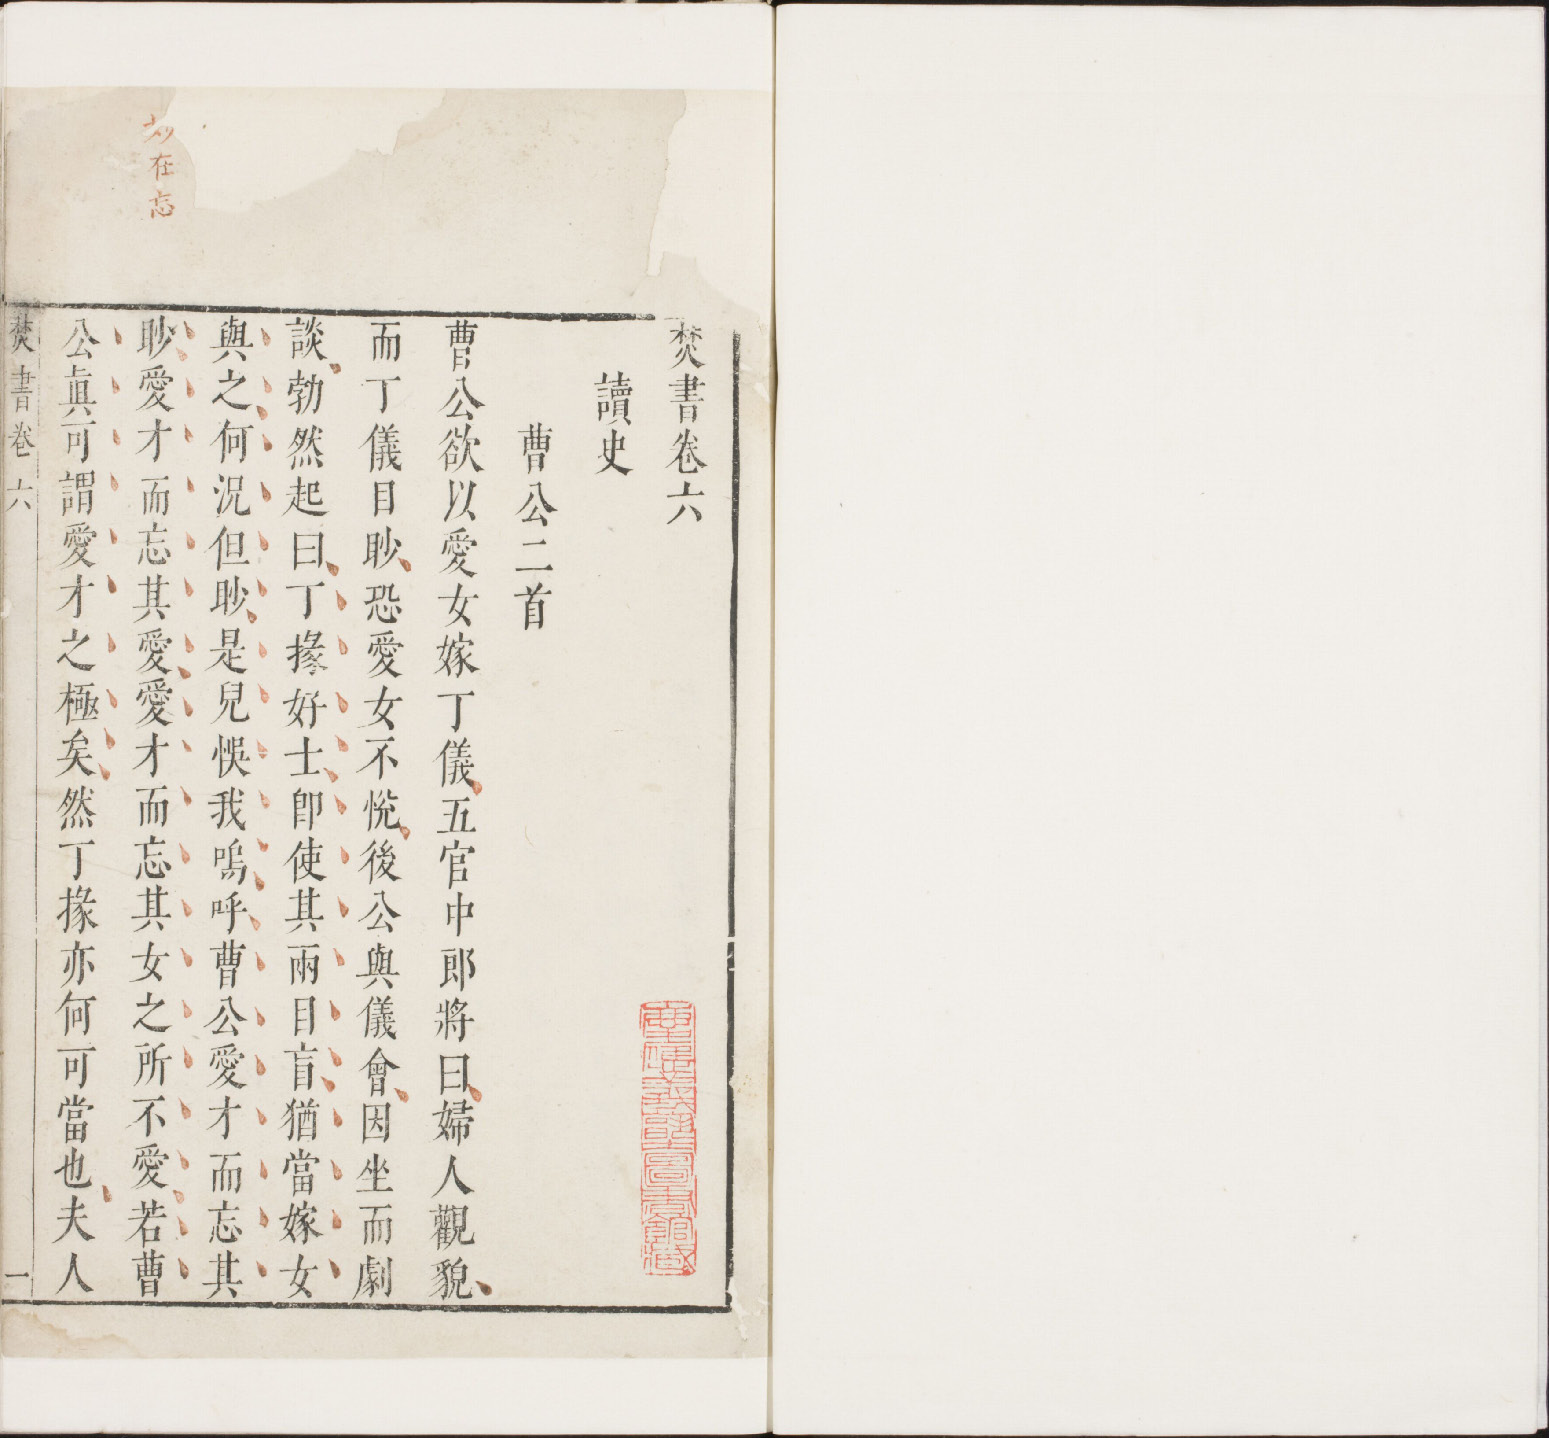 焚書卷六
讀史
曹公二首
曹公欲以愛女嫁丁儀五官中郎將曰婦人觀貌
而丁儀目眇恐愛女不悅後公與儀會因坐而劇
談勃然起曰丁掾好士卽使其兩目盲猶當嫁女
與之何況但眇是兒悞我嗚呼曹公愛才而忘其
眇愛才而忘其愛愛才而忘其女之所不愛若曹
公眞可謂愛才之極矣然丁掾亦何可當也夫人
妙在忘
焚書卷六 一